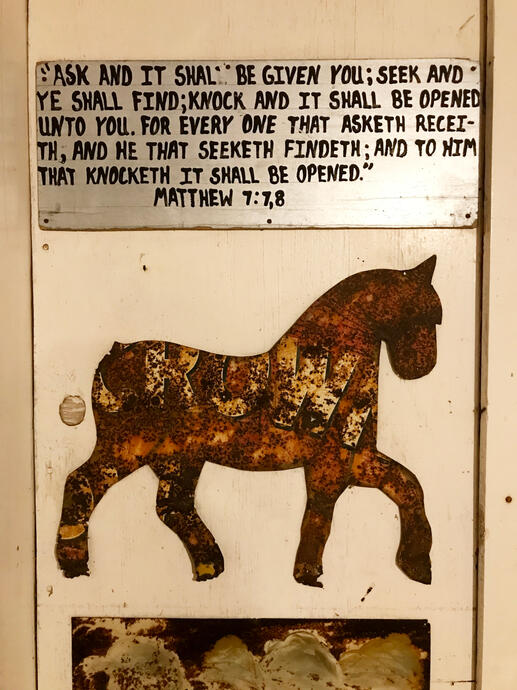 "ASK AND IT SHAL" BE GIVEN YOU; SEEK AND
YE SHALL FIND; KNOCK AND IT SHALL BE OPENED
UNTO YOU. FOR EVERY ONE THAT ASKETH RECEI-
TH, AND HE THAT SEEKETH FINDETH; AND TO HIM
THAT KNOCKETH IT SHALL BE OPENED."
MATTHEW 7:7,8
CROW